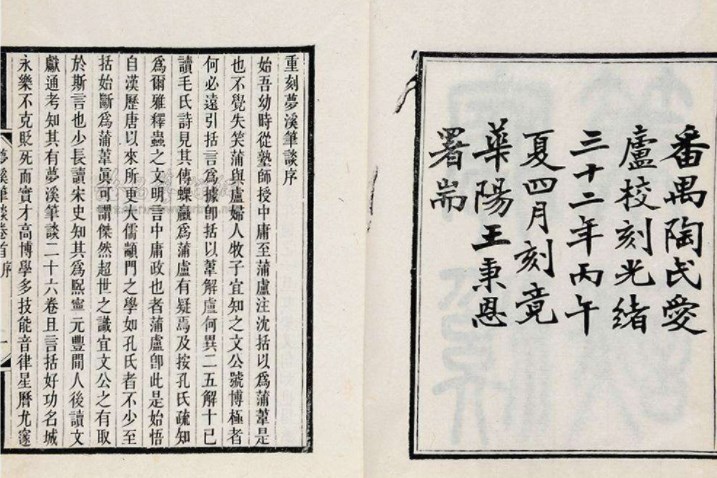 番禺陶氏愛
廬校刻光緒
三十二年丙午
夏四月刻竟
華陽王秉恩
署耑
重刻夢溪筆談序
始吾幼時從塾師授中庸至蒲盧注沈括以為蒲葦是
也不覺失笑蒲與盧婦人牧子宜知之文公號博極者
何必遠引括言為據卽括以葦解盧何異二五解十已
讀毛氏詩見其傳蜾蠃為蒲盧有疑焉及按孔氏疏知
為爾雅釋蟲之文明言中庸政也者蒲盧卽此是始悟
自漢歷唐以來所更大儒顓門之學如孔氏者不少至
括始斷為蒲葦眞可謂傑然超世之識宜文公之有取
於斯言也少長讀宋史知其為熈寧元豐閒人後讀文
獻通考知其有夢溪筆談二十六卷且言括好功名城
永樂不克貶死而實才高博學多技能音律星曆尤邃
夢溪筆談卷首 序 一